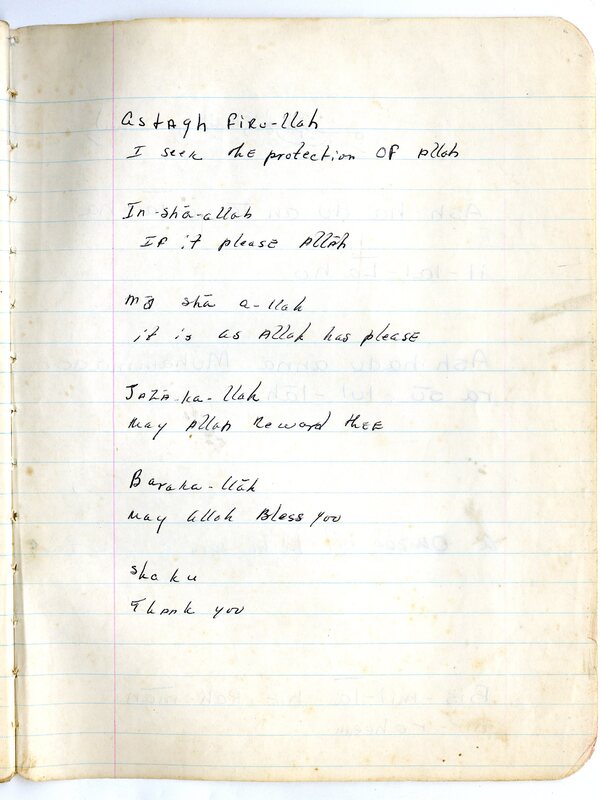 Astagh firu-llah
I seek the protection of Allah
In-shā-allah
If it please Allāh
mā shā a-llah
it is as Allah has please
Jazā-ka-llah
may Allah Reward thee
Baraka-llāh
may Allah Bless you
shaku
Thank you